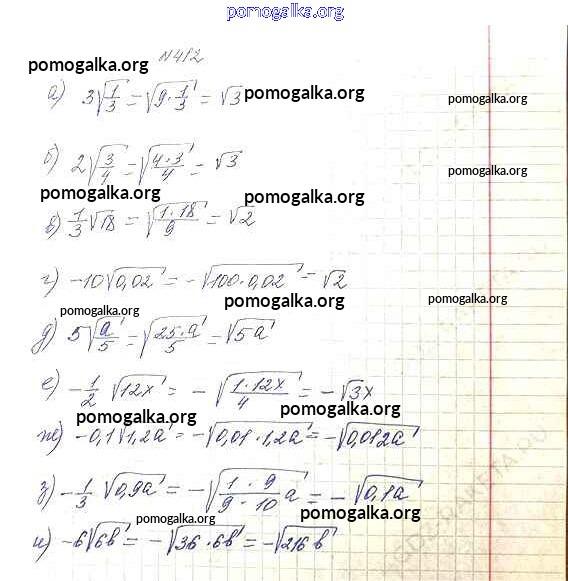 pomogalka.org
№ 412
pomogalka.org
а) 3√(1/3) = √(9·1/3) = √3 pomogalka.org
pomogalka.org
б) 2√(3/4) = √(4·3/4) = √3
pomogalka.org
pomogalka.org pomogalka.org
в) 1/3 √18 = √(1·18/9) = √2
г) -10√0,02 = -√(100·0,02) = √2
pomogalka.org pomogalka.org
pomogalka.org
д) 5√(a/5) = √(25·a/5) = √5a
е) -1/2 √12x = -√(1·12x/4) = -√3x
pomogalka.org pomogalka.org
ж) -0,1√1,2a = -√(0,01·1,2a) = -√0,012a
з) -1/3 √0,9a = -√(1·9/9·10 a) = -√0,1a
pomogalka.org pomogalka.org
и) -6√6b = -√(36·6b) = -√216b